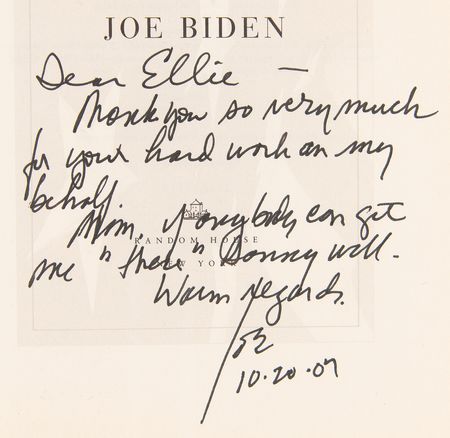 JOE BIDEN
Dear Ellie —
Thank you so very much
for your hard work on my
behalf.
Mom, if anybody can get
RANDOM HOUSE
me "there" Sonny will.
NEW YORK
Warm regards.
10.20.07